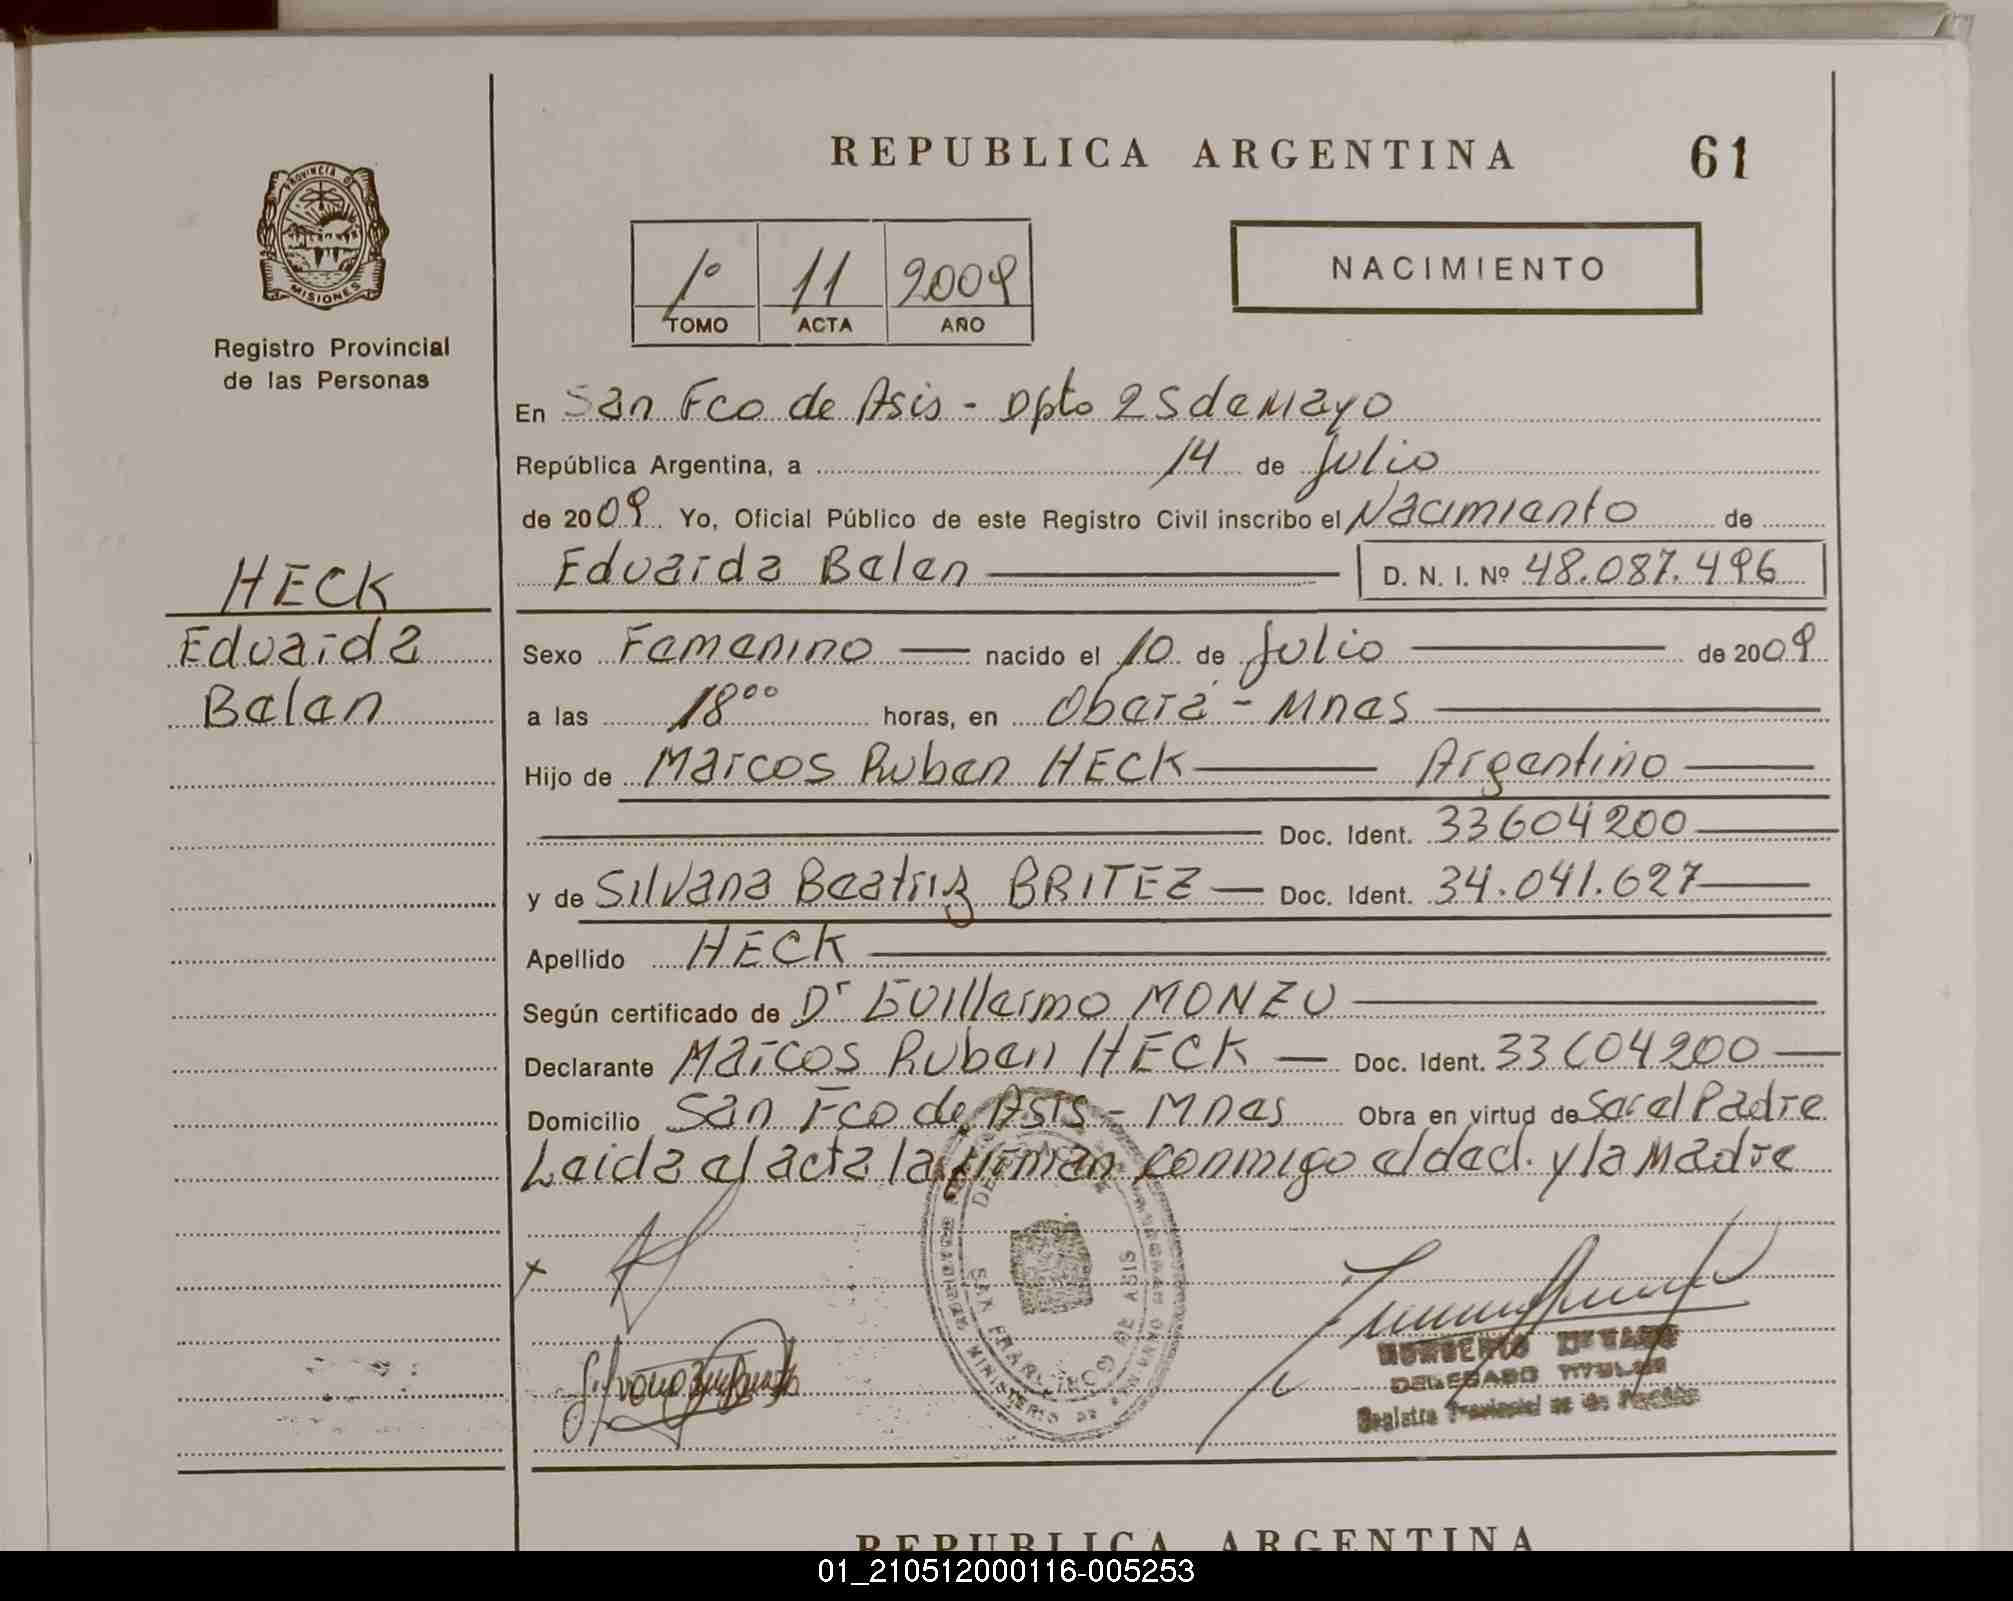 REPUBLICA ARGENTINA 61
PROVINCIA DE
MISIONES
Registro Provincial
de las Personas
1º 11 2009
TOMO ACTA AÑO
NACIMIENTO
En San Fco de Asis - Dpto 25 de Mayo
República Argentina, a 14 de Julio
de 2009 Yo, Oficial Público de este Registro Civil inscribo el Nacimiento de
Eduarda Belen D. N. I. Nº 48.087.496
HECK
Eduarda
Belen
Sexo Femenino nacido el 10 de Julio de 2009
a las 18⁰⁰ horas, en Oberá - Mnes
Hijo de Marcos Ruben HECK Argentino
Doc. Ident. 33604200
y de Silvana Beatriz BRITEZ Doc. Ident. 34.041.627
Apellido HECK
Según certificado de Dr Guillermo MONZU
Declarante Marcos Ruben HECK Doc. Ident. 33604200
Domicilio San Fco de Asis - Mnes Obra en virtud de Ser el Padre
Leida el acta la firman conmigo el decl. y la Madre
SAN FRANCISCO DE ASIS
MINISTERIO DE
DELEGADO TITULAR
REPUBLICA ARGENTINA
01_210512000116-005253